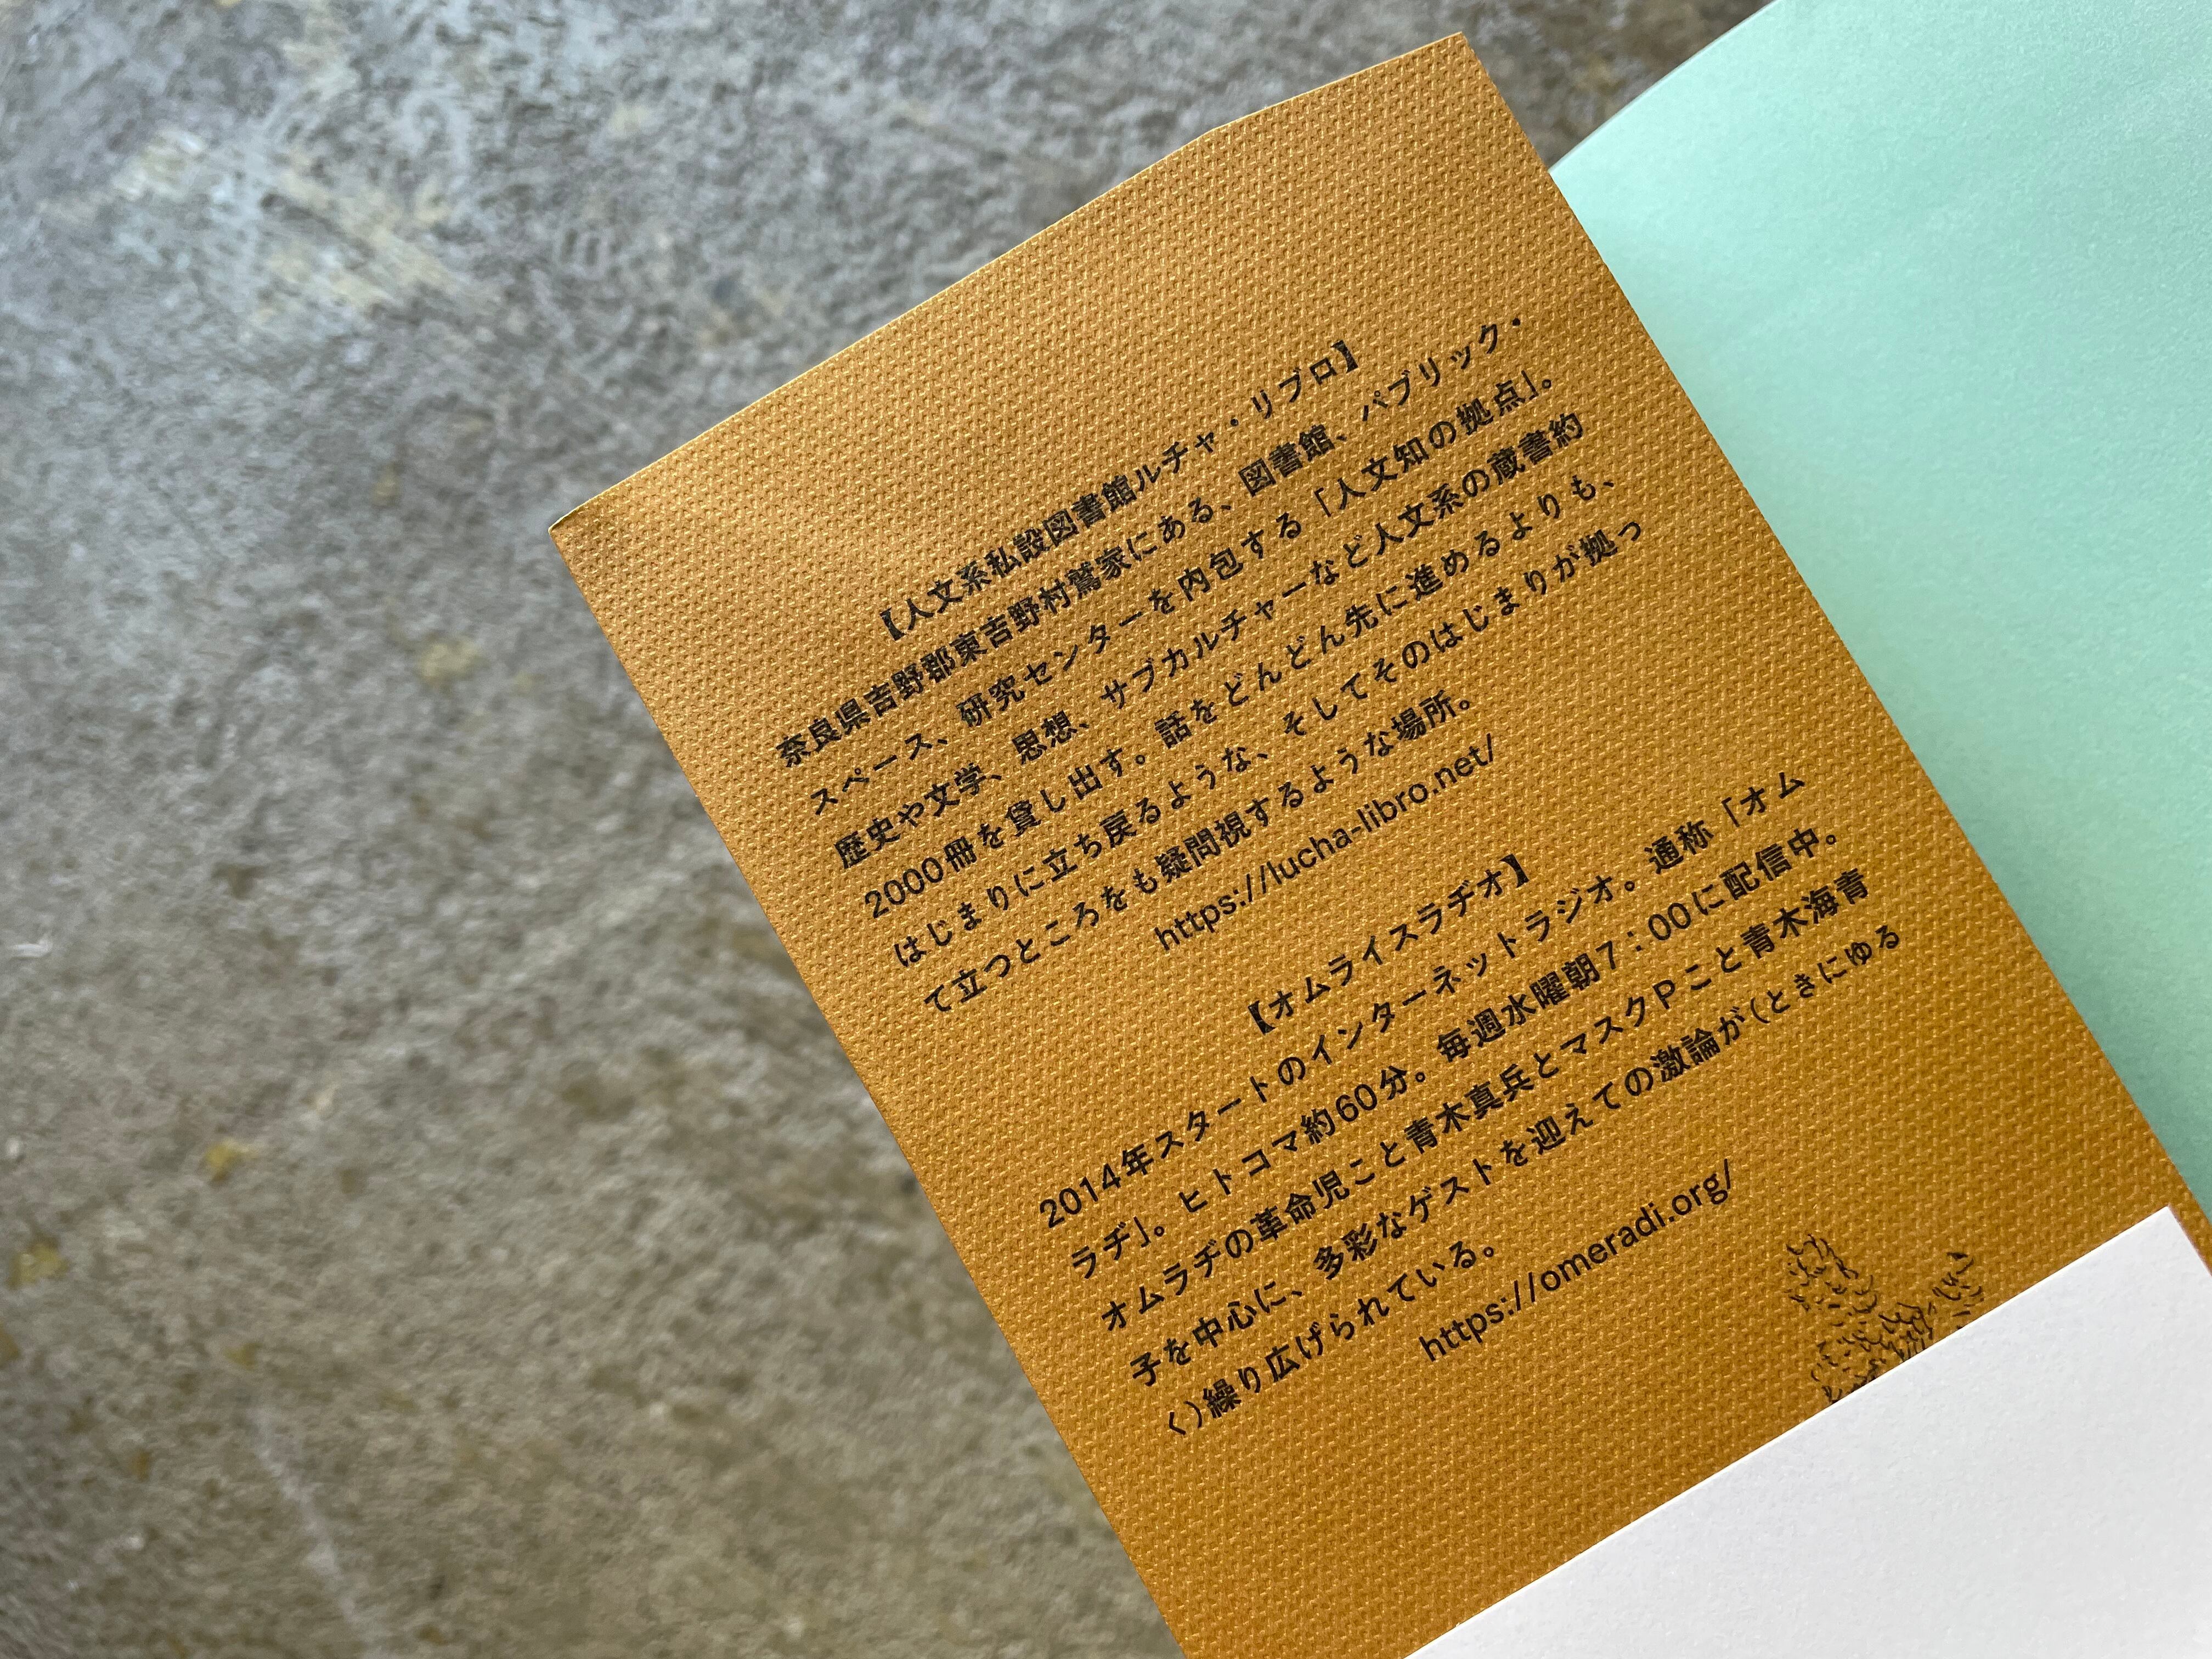 【人文系私設図書館ルチャ・リブロ】
奈良県吉野郡東吉野村鷲家にある、図書館、パブリック・
スペース、研究センターを内包する「人文知の拠点」。
歴史や文学、思想、サブカルチャーなど人文系の蔵書約
2000冊を貸し出す。話をどんどん先に進めるよりも、
はじまりに立ち戻るような、そしてそのはじまりが拠っ
て立つところをも疑問視するような場所。
https://lucha-libro.net/
【オムライスラヂオ】
2014年スタートのインターネットラジオ。通称「オム
ラヂ」。ヒトコマ約60分。毎週水曜朝7：00に配信中。
オムラヂの革命児こと青木真兵とマスクPこと青木海青
子を中心に、多彩なゲストを迎えての激論が(ときにゆる
く)繰り広げられている。
https://omeradi.org/